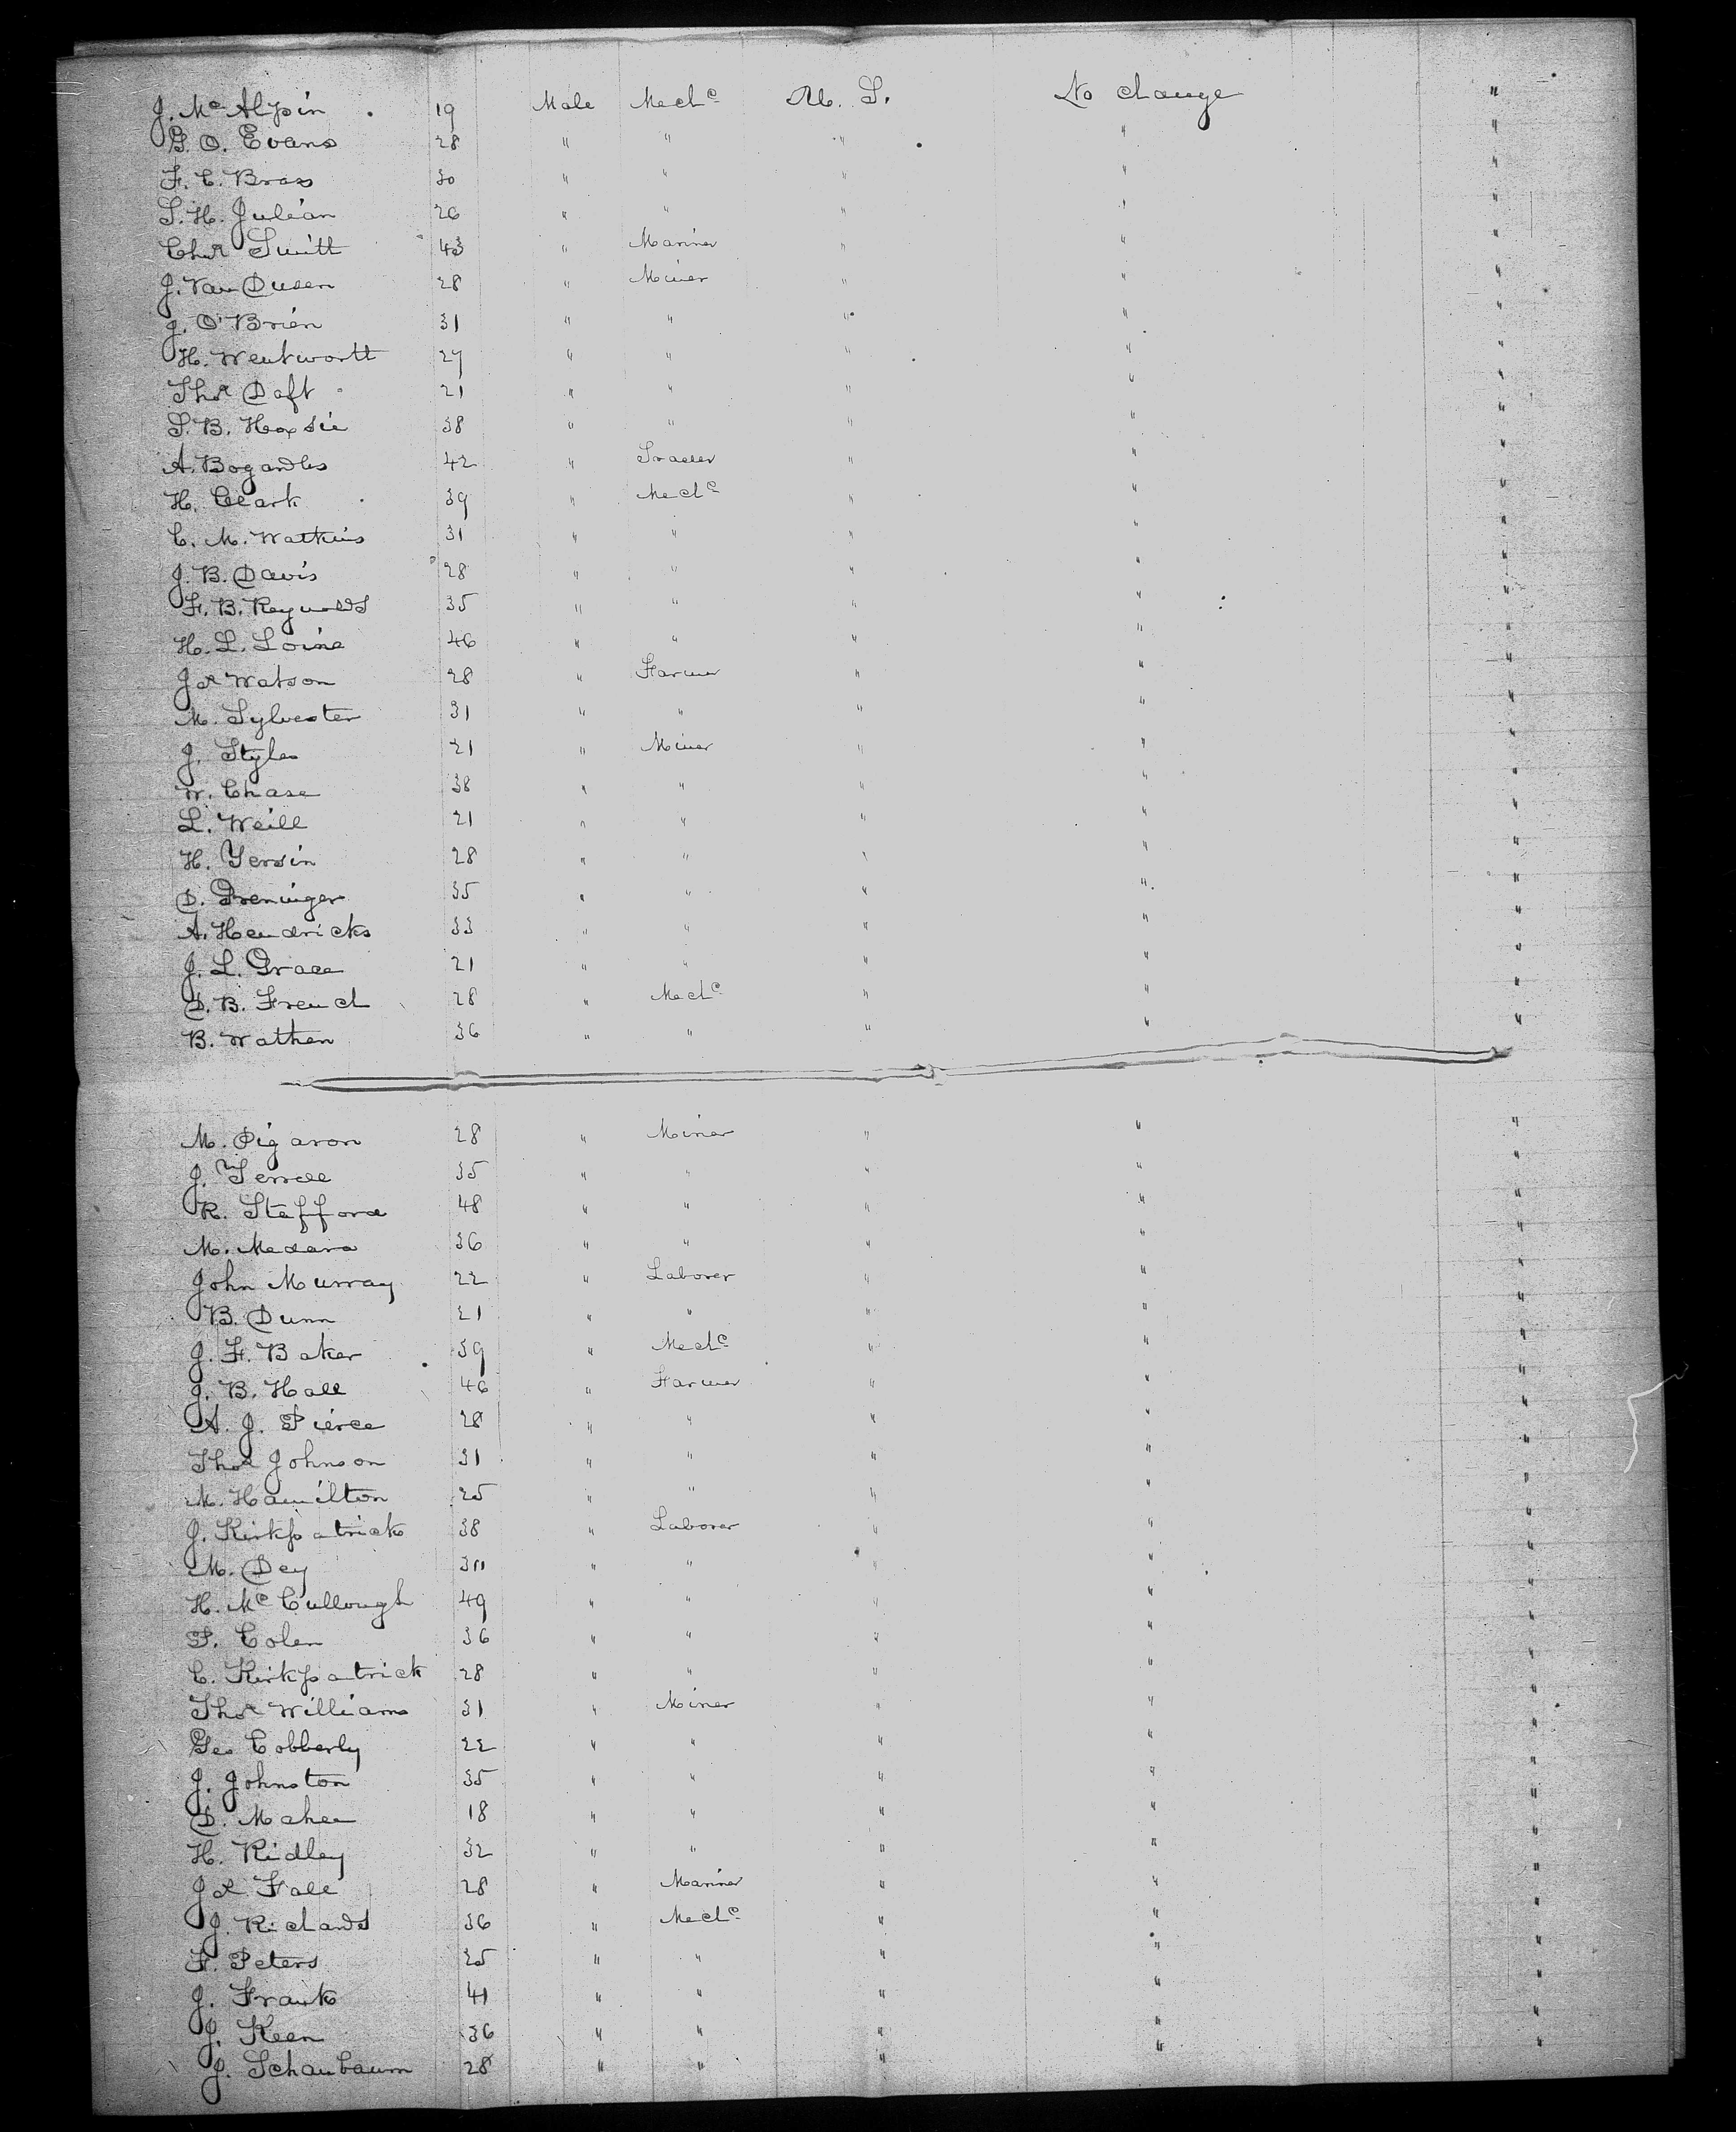 J. Mc Alpin 19 Male Mechc U. S. No change "
G. O. Evans 28 " " " " "
F. C. Brass 30 " " " " "
S. H. Julian 26 " " " " "
Chas Smith 43 " Mariner " " "
J. Van Dusen 28 " Miner " " "
J. O'Brien 31 " " " " "
H. Wentworth 27 " " " " "
Thos Daft 21 " " " " "
S. B. Hoxsie 38 " " " " "
A. Bogardus 42 " Trader " " "
H. Clark 39 " Mechc " " "
C. M. Watkins 31 " " " " "
J. B. Davis 28 " " " " "
F. B. Reynolds 35 " " " " "
H. L. Loine 46 " " " " "
Jas Watson 28 " Farmer " " "
M. Sylvester 31 " " " " "
J. Styles 21 " Miner " " "
W. Chase 38 " " " " "
L. Weill 21 " " " " "
H. Yersin 28 " " " " "
D. Greninger 35 " " " " "
A. Hendricks 33 " " " " "
J. L. Grace 21 " " " " "
D. B. French 28 " Mechc " " "
B. Wathen 36 " " " " "
M. Pigaron 28 " Miner " " "
J. 35 " " " " "
R. Stafford 48 " " " " "
M. Medara 36 " " " " "
John Murray 22 " Laborer " " "
B. Dunn 21 " " " " "
J. F. Baker 39 " Mechc " " "
J. B. Hall 46 " Farmer " " "
A. J. Pierce 28 " " " " "
Thos Johnson 31 " " " " "
M. Hamilton 25 " " " " "
J. Kirkpatrick 38 " Laborer " " "
M. Dey " " " " "
H. Mc Cullough 49 " " " " "
P. Colen 36 " " " " "
C. Kirkpatrick 28 " " " " "
Thos Williams 31 " Miner " " "
Geo Cobberly 22 " " " " "
J. Johnston 35 " " " " "
D. Mahee 18 " " " " "
H. Ridley 32 " " " " "
Jas Fall 28 " Mariner " " "
J. Richards 36 " Mechc " " "
F. Peters 25 " " " " "
J. Frank 41 " " " " "
J. Keen 36 " " " " "
J. Schaubaum 28 " " " " "